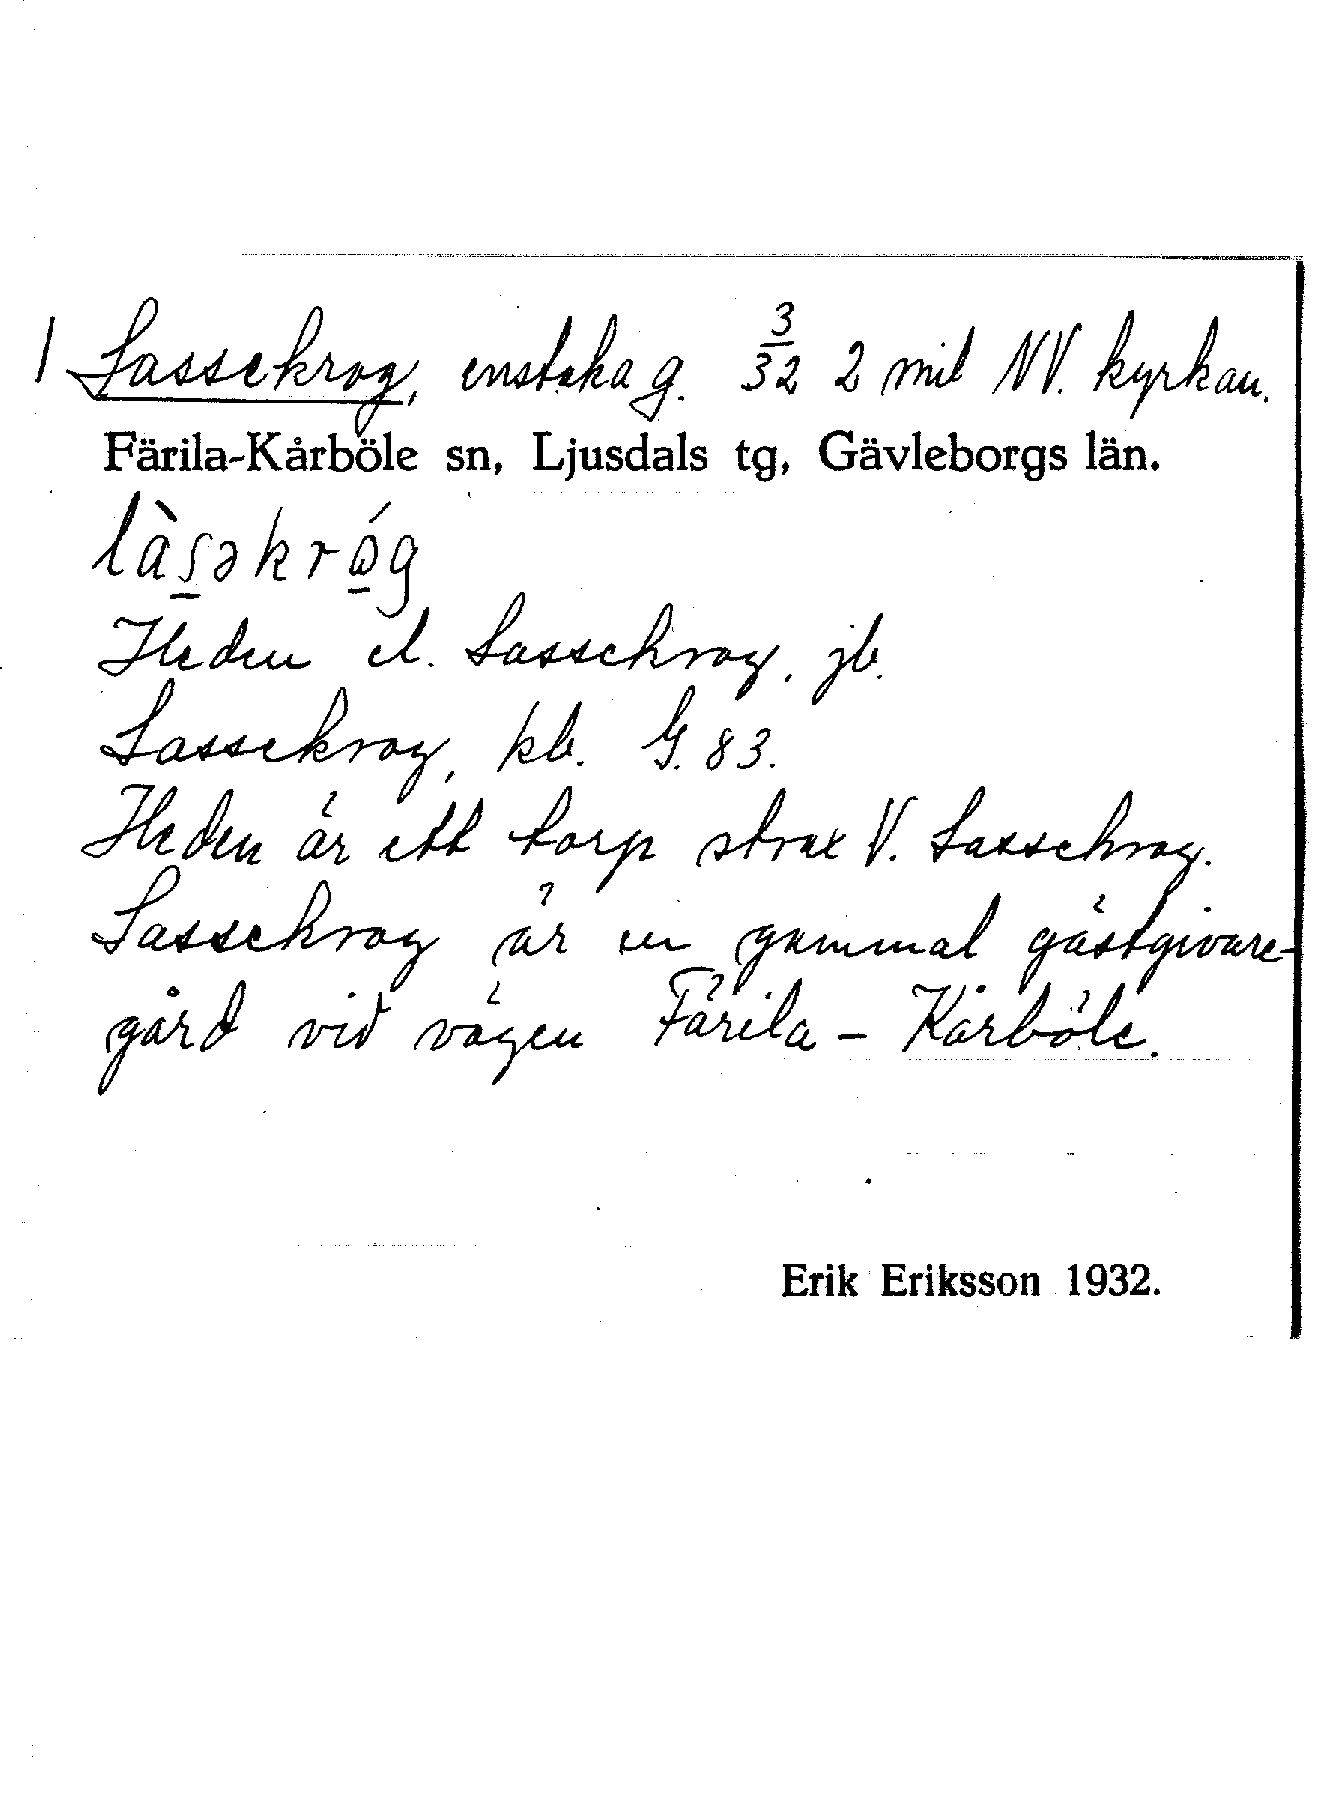 1 Lassekrog, enstaka g. 3/32 2 mil NV. kyrkan.
Färila-Kårböle sn, Ljusdals tg, Gävleborgs län.
làs̠əkrǫ́g
Heden el. Lassekrog, jb.
Lassekrog, kb. G. 83.
Heden är ett torp strax V. Lassekrog.
Lassekrog är en gammal gästgivare-
gård vid vägen Färila - Kårböle.
Erik Eriksson 1932.